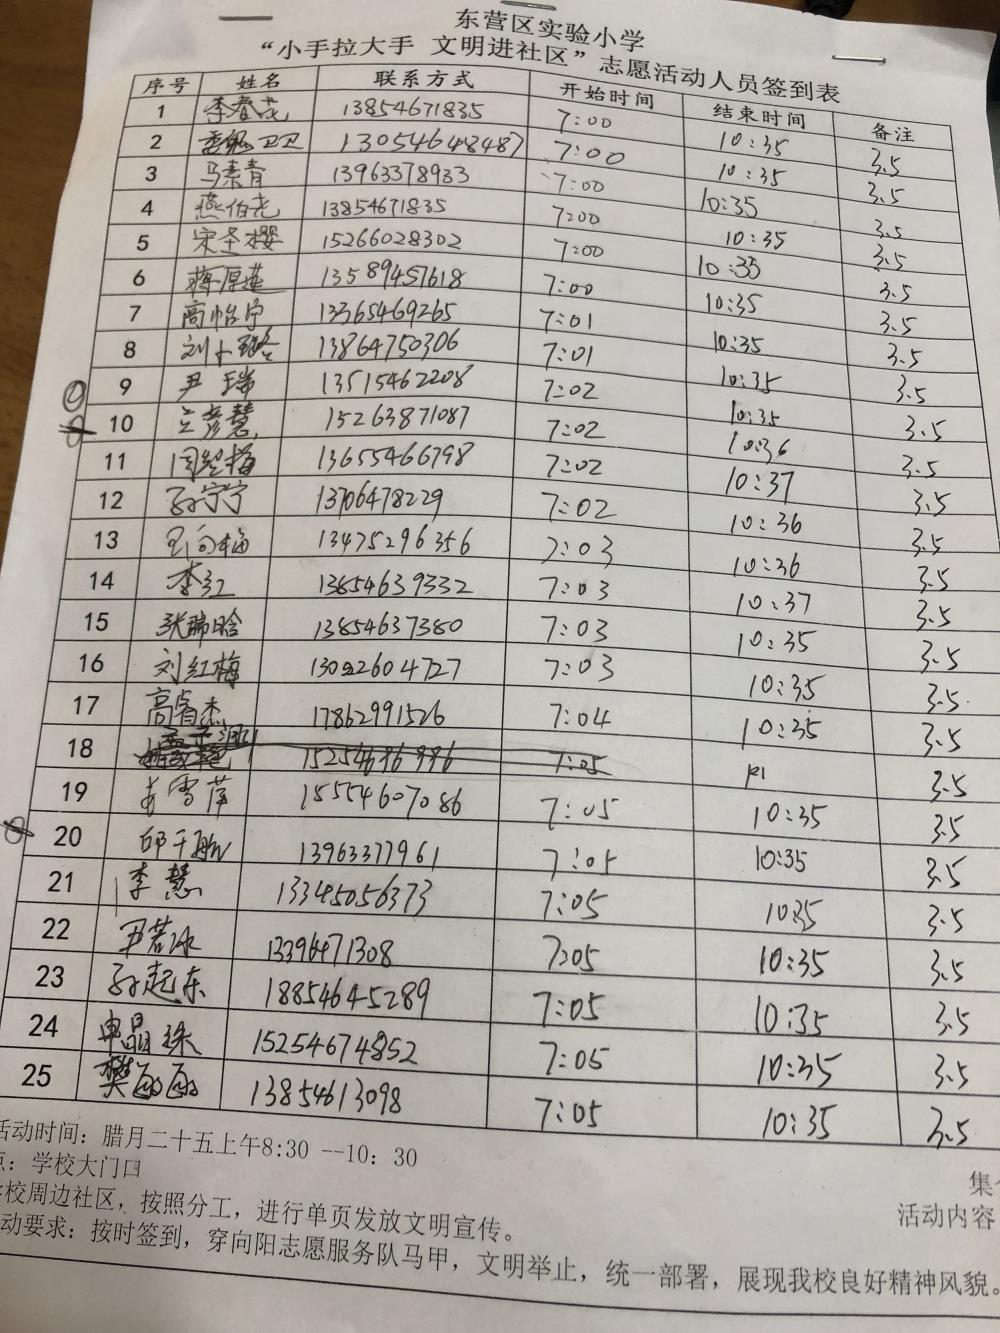 东营区实验小学
“小手拉大手 文明进社区”志愿活动人员签到表
序号 姓名 联系方式 开始时间 结束时间 备注
1 李春花 13854671835 7:00 10:35 3.5
2 卫卫 13054648487 7:00 10:35 3.5
3 马素青 13963378933 7:00 10:35 3.5
4 燕伯尧 13854671835 7:00 10:35 3.5
5 宋圣樱 15266028302 7:00 10:35 3.5
6 蒋厚莲 13589457618 7:00 10:35 3.5
7 高怡宁 13365469265 7:01 10:35 3.5
8 刘卜璐 13864750306 7:01 10:35 3.5
9 尹瑞 13515462208 7:02 10:35 3.5
10 彦慧 15263871087 7:02 10:36 3.5
11 周梅 13655466798 7:02 10:37 3.5
12 孙宁宁 13706478229 7:02 10:36 3.5
13 向梅 13475296356 7:03 10:36 3.5
14 李红 13854639332 7:03 10:37 3.5
15 张瑞晗 13854637380 7:03 10:35 3.5
16 刘红梅 13092604727 7:03 10:35 3.5
17 高睿杰 17862991526 7:04 10:35 3.5
18 7:05 3.5
19 雪萍 15554607086 7:05 10:35 3.5
20 邱千航 13963377961 7:05 10:35 3.5
21 李慧 13345056373 7:05 10:35 3.5
22 尹若冰 13396471308 7:05 10:35 3.5
23 孙起东 18854645289 7:05 10:35 3.5
24 单晶珠 15254674852 7:05 10:35 3.5
25 樊 13854613098 7:05 10:35 3.5
活动时间：腊月二十五上午8:30 --10：30
点：学校大门口
集
活动内容
学校周边社区，按照分工，进行单页发放文明宣传。
动要求：按时签到，穿向阳志愿服务队马甲，文明举止，统一部署，展现我校良好精神风貌。